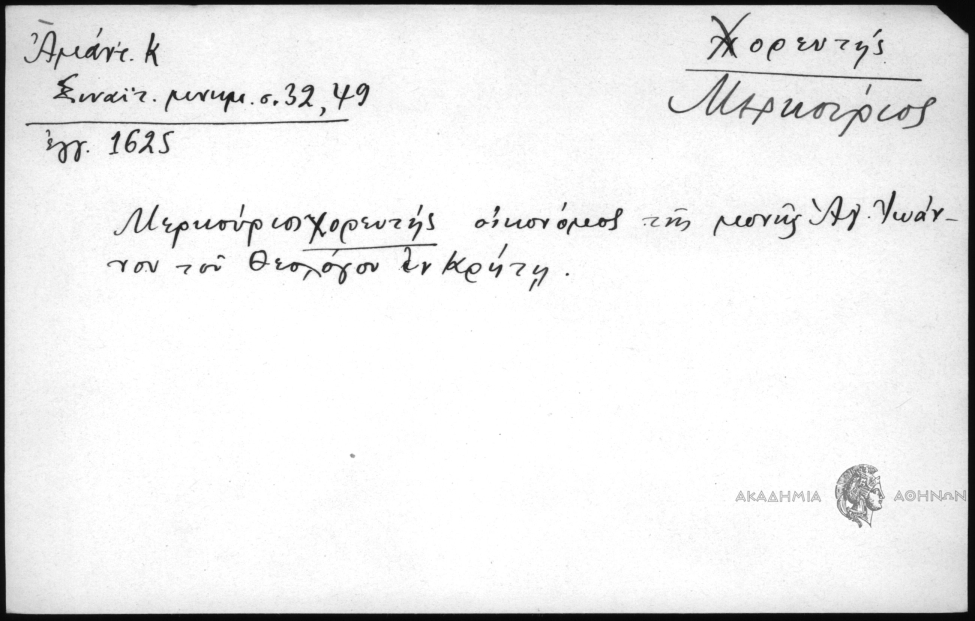 Ἀμάντ. Κ
Σιναϊτ. μνημ. σ. 32, 49
ἔγγ. 1625
Χορευτής
Μερκούριος
Μερκούριος Χορευτής οἰκονόμος τῆς μονῆς Ἁγ. Ἰωάν-
νου τοῦ Θεολόγου ἐν Κρήτῃ.
ΑΚΑΔΗΜΙΑ ΑΘΗΝΩΝ